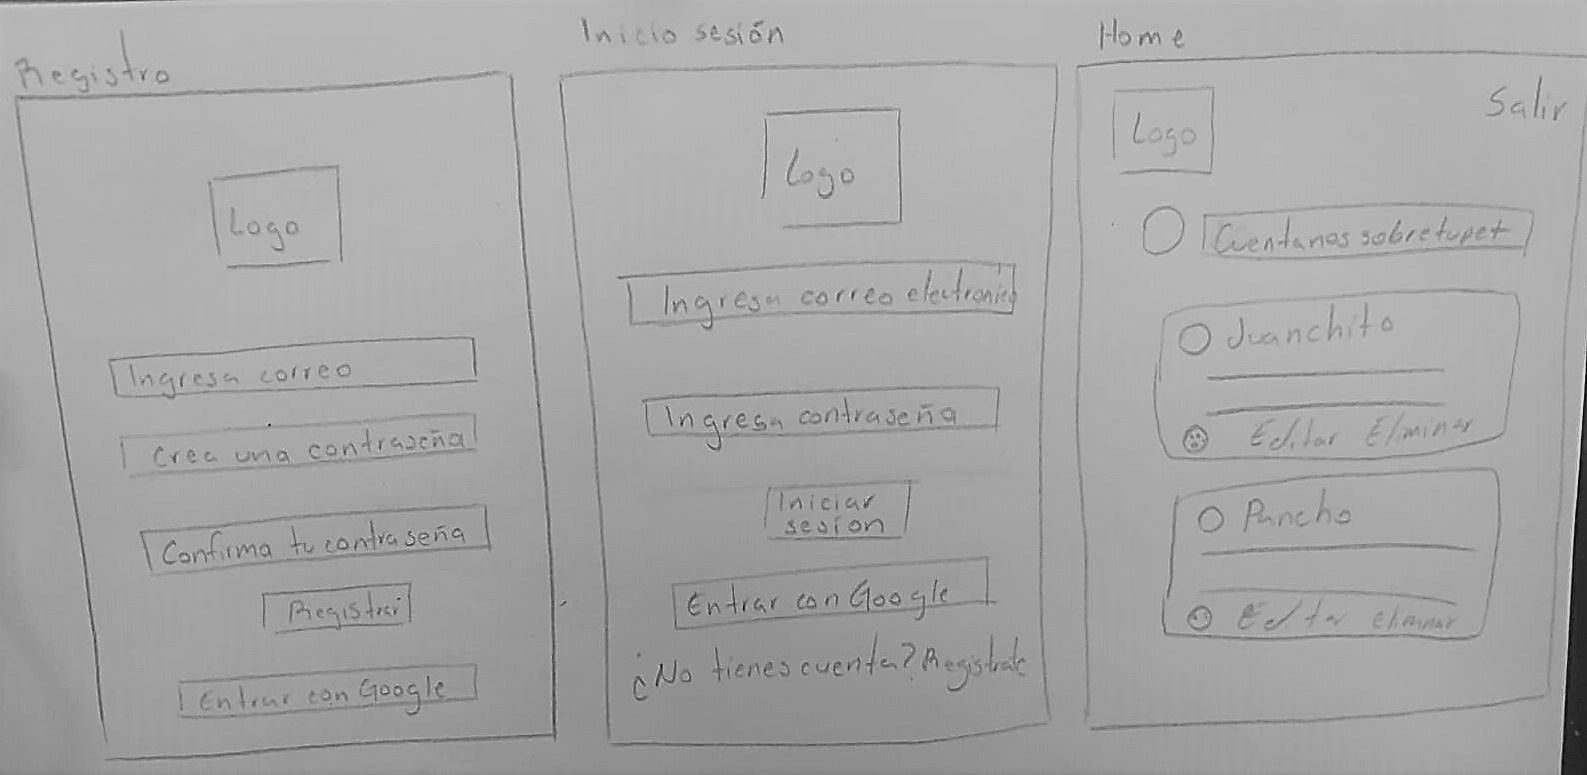 Registro
Logo
Ingresa correo
Crea una contraseña
Confirma tu contraseña
Registrar
Entrar con Google
Inicio sesión
Logo
Ingresa correo electronico
Ingresa contraseña
Iniciar
sesion
Entrar con Google
¿No tienes cuenta? Registrate
Home
Logo
Salir
Cuentanos sobre tu pet
Juanchito
Editar Eliminar
Pancho
Editar eliminar